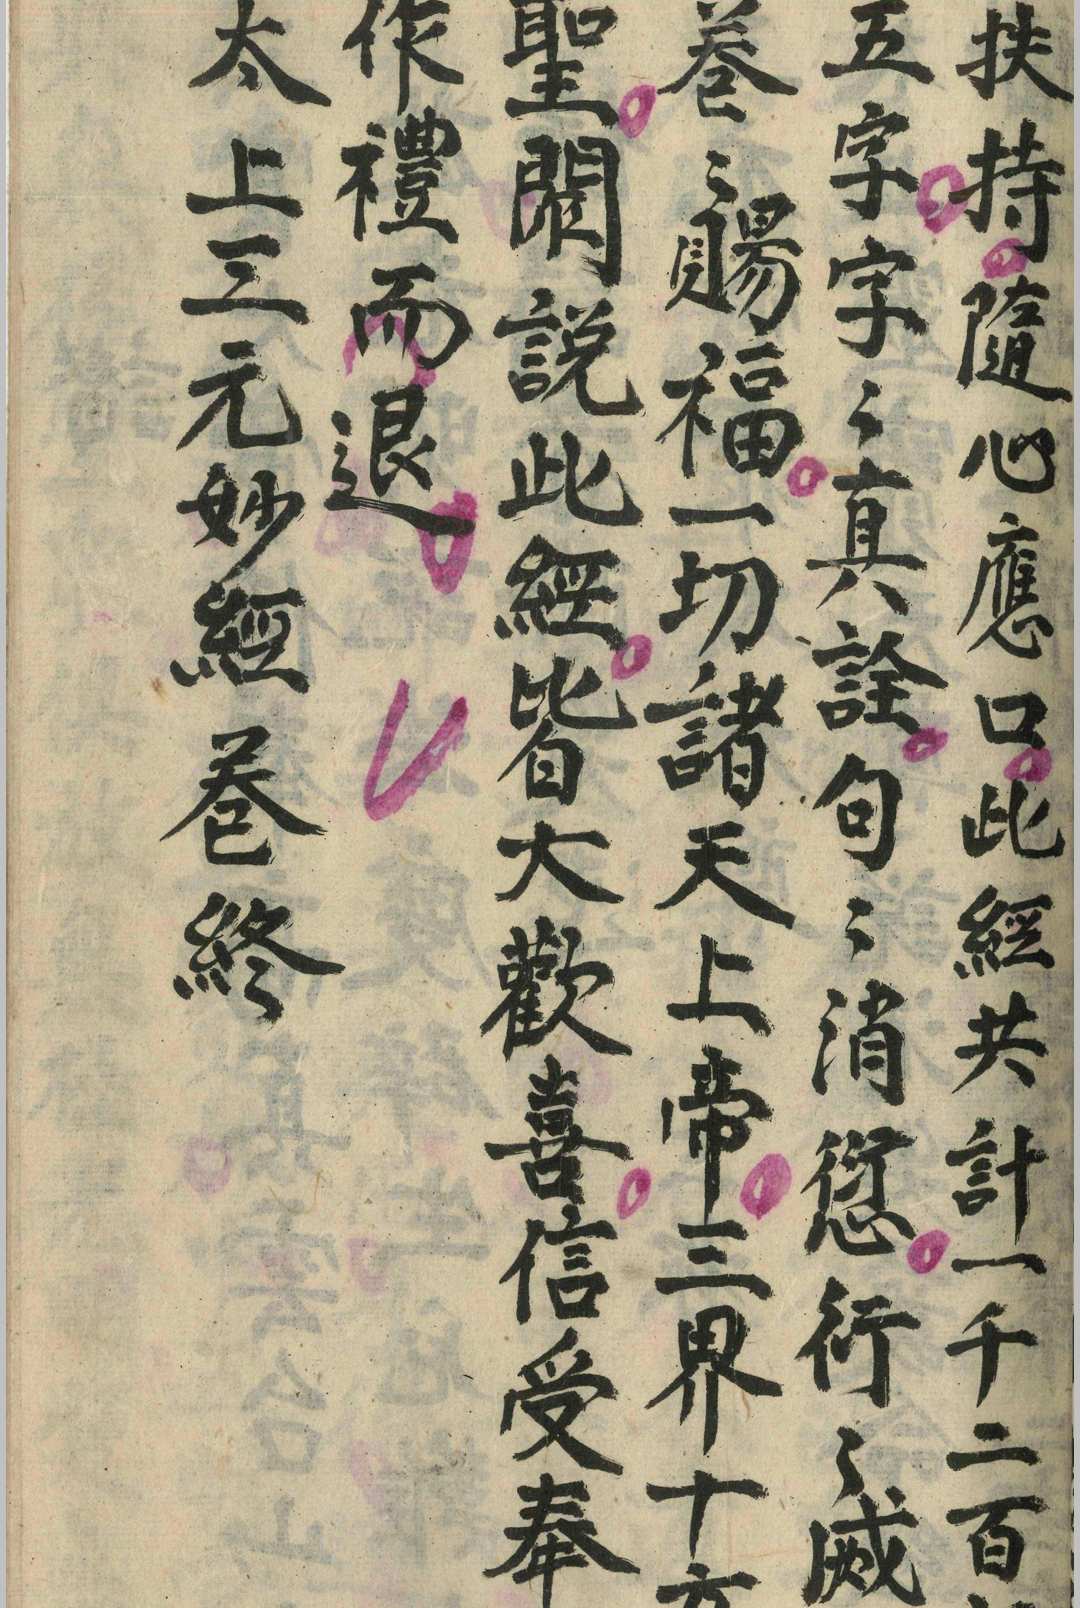 扶持隨心應口此經共計一千二百
五字字〻真詮句〻消愆行〻滅
卷〻賜福一切諸天上帝三界十方
聖聞說此經皆大歡喜信受奉
作禮而退
太上三元妙經卷終